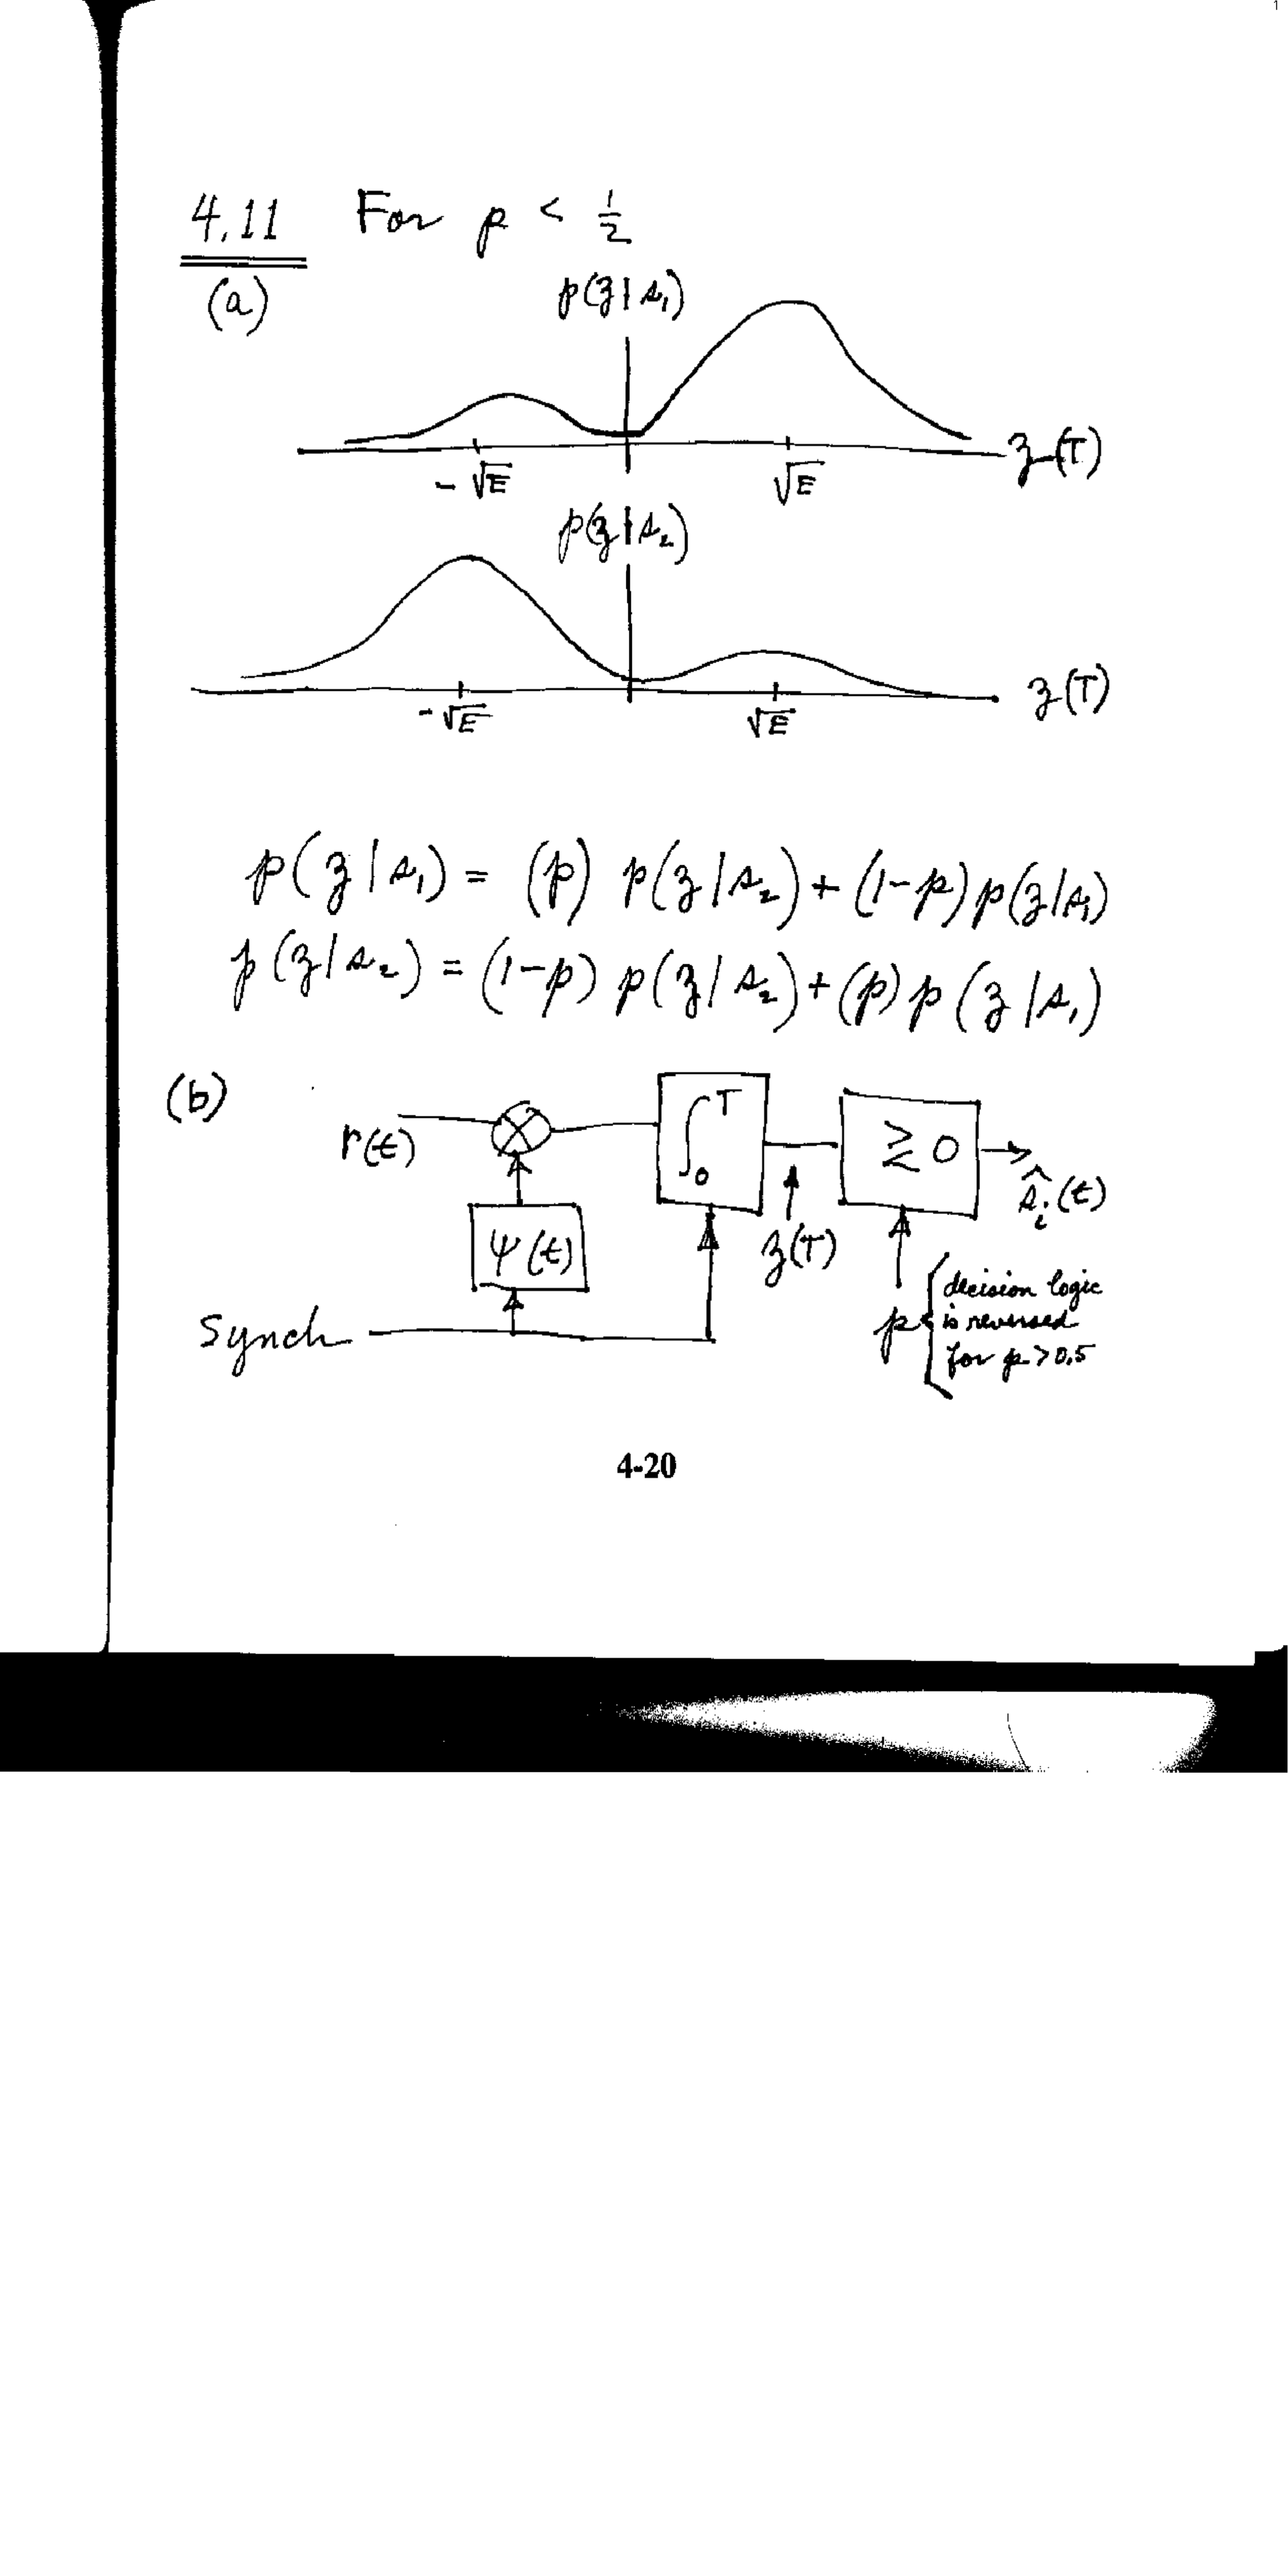 1
4.11 For p < 1/2
(a)
p(z|s₁)
-√E √E z(T)
p(z|s₂)
-√E √E z(T)
p(z|s₁) = (p) p(z|s₂) + (1-p) p(z|s₁)
p(z|s₂) = (1-p) p(z|s₂) + (p) p(z|s₁)
(b)
r(t) ∫₀ᵀ ≷ 0 ŝᵢ(t)
ψ(t) z(T)
Synch p { decision logic
is reversed
for p > 0.5
4-20